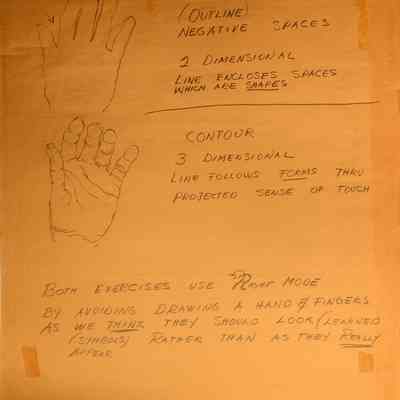 (OUTLINE)
NEGATIVE SPACES
2 DIMENSIONAL
LINE ENCLOSES SPACES
WHICH ARE SHAPES
CONTOUR
3 DIMENSIONAL
LINE FOLLOWS FORMS THRU
PROJECTED SENSE OF TOUCH
BOTH EXERCISES USE RIGHT MODE
BY AVOIDING DRAWING A HAND & FINGERS
AS WE THINK THEY SHOULD LOOK (LEARNED
(SYMBOLS) RATHER THAN AS THEY REALLY
APPEAR